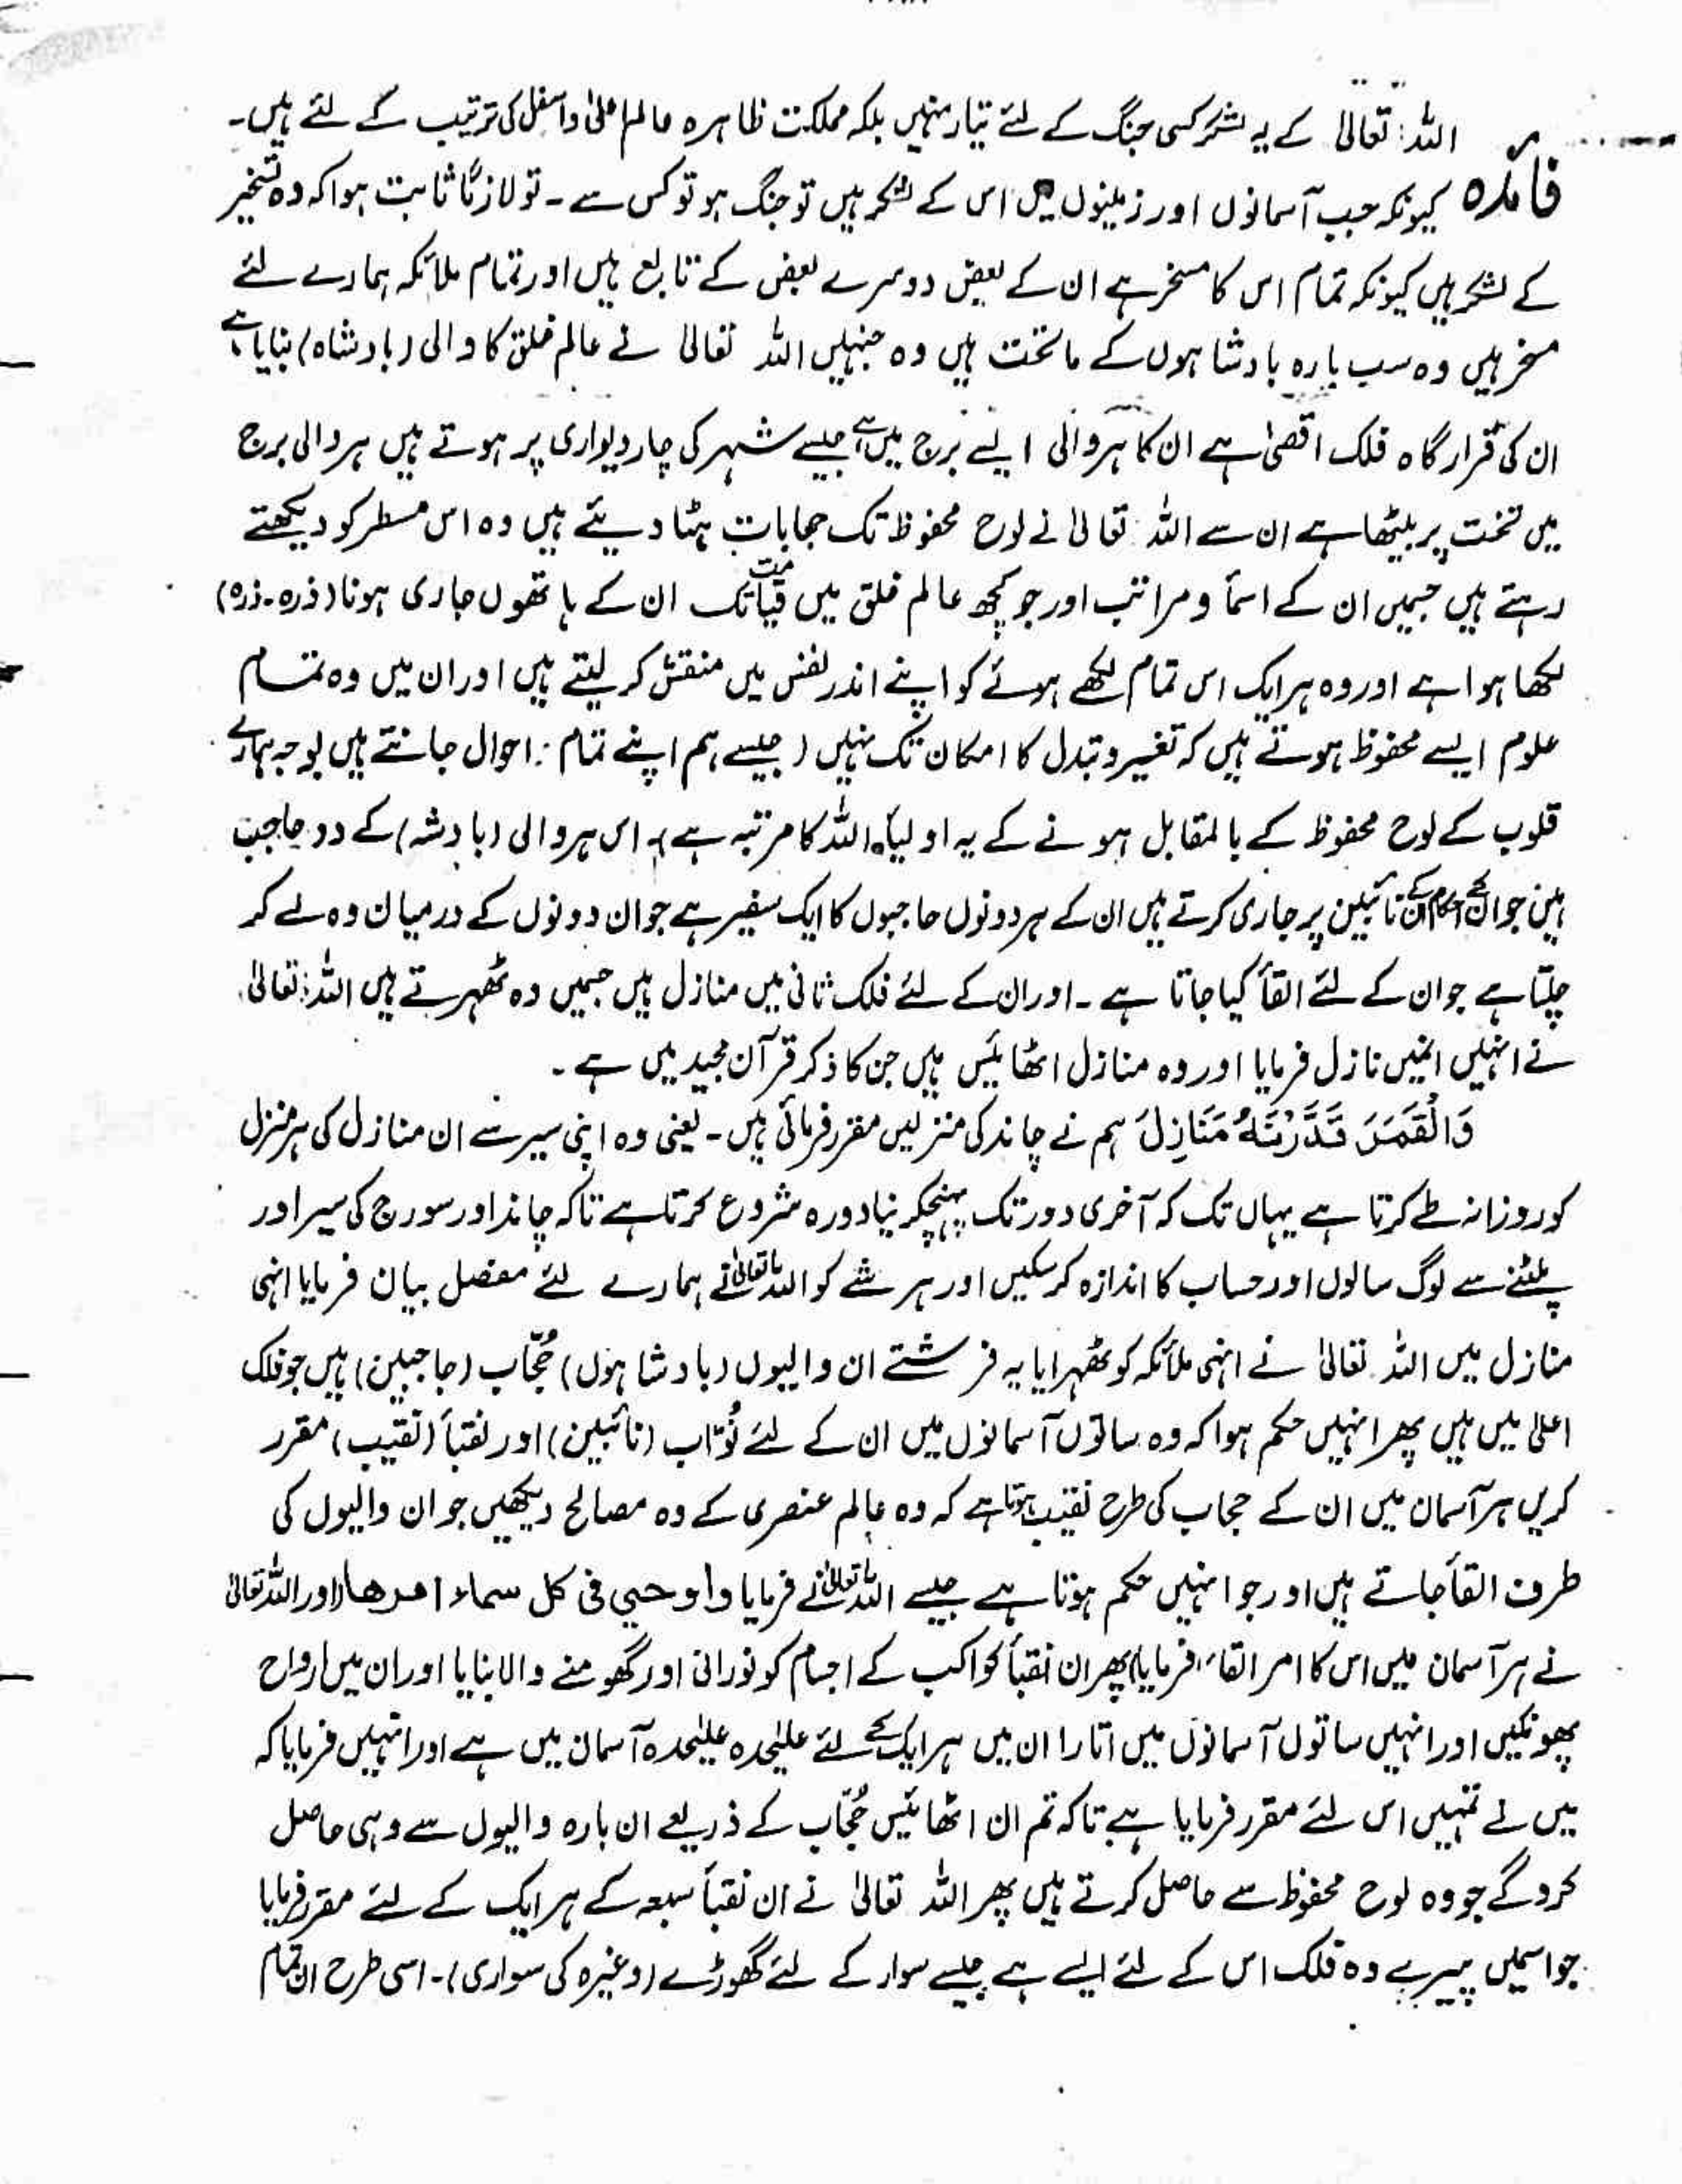 اللہ تعالیٰ کے یہ لشکر کسی جنگ کے لئے تیار نہیں بلکہ مملکت ظاہرہ عالم اعلیٰ و اسفل کی ترتیب کے لئے ہیں۔
فائدہ کیونکہ جب آسمانوں اور زمینوں میں اس کے لشکر ہیں تو جنگ ہو تو کس سے۔ تو لازماً ثابت ہوا کہ وہ تسخیر
کے لشکر ہیں کیونکہ تمام اس کا مسخر ہے ان کے بعض دوسرے بعض کے تابع ہیں اور تمام ملائکہ ہمارے لئے
مسخر ہیں وہ سب بارہ بادشاہوں کے ماتحت ہیں وہ جنہیں اللہ تعالیٰ نے عالم خلق کا والی (بادشاہ) بنایا ہے
ان کی قرار گاہ فلک اقصیٰ ہے ان کا ہر والی ایسے برج میں ہے جیسے شہر کی چار دیواری پر ہوتے ہیں ہر والی برج
میں تخت پر بیٹھا ہے ان سے اللہ تعالیٰ نے لوح محفوظ تک حجابات ہٹا دیئے ہیں وہ اس مسطر کو دیکھتے
رہتے ہیں جسمیں ان کے اسمأ و مراتب اور جو کچھ عالم خلق میں قیامت تک ان کے ہاتھوں جاری ہونا (ذرہ۔ذرہ)
لکھا ہوا ہے اور وہ ہر ایک اس تمام لکھے ہوئے کو اپنے اندر نفس میں منقش کر لیتے ہیں اور ان میں وہ تمام
علوم ایسے محفوظ ہوتے ہیں کہ تغیر و تبدل کا امکان تک نہیں (جیسے ہم اپنے تمام احوال جانتے ہیں بوجہ ہمارے
قلوب کے لوح محفوظ کے بالمقابل ہونے کے یہ اولیأ اللہ کا مرتبہ ہے) اس ہر والی (بادشہ) کے دو حاجب
ہیں جو ان کے احکام ان کے نائبین پر جاری کرتے ہیں ان کے ہر دونوں حاجبوں کا ایک سفیر ہے جو ان دونوں کے درمیان وہ لے کر
چلتا ہے جو ان کے لئے القأ کیا جاتا ہے۔ اور ان کے لئے فلک ثانی میں منازل ہیں جسمیں وہ ٹھہرتے ہیں اللہ تعالیٰ
نے انہیں انمیں نازل فرمایا اور وہ منازل اٹھائیس ہیں جن کا ذکر قرآن مجید میں ہے۔
وَالْقَمَرَ قَدَّرْنٰهُ مَنَازِلَ ہم نے چاند کی منزلیں مقرر فرمائی ہیں۔ یعنی وہ اپنی سیر سے ان منازل کی ہر منزل
کو روزانہ طے کرتا ہے یہاں تک کہ آخری دور تک پہنچکر نیا دورہ شروع کرتا ہے تاکہ چاند اور سورج کی سیر اور
پلٹنے سے لوگ سالوں اور حساب کا اندازہ کرسکیں اور ہر شے کو اللہ تعالیٰ نے ہمارے لئے مفصل بیان فرمایا انہی
منازل میں اللہ تعالیٰ نے انہی ملائکہ کو ٹھہرایا یہ فرشتے ان والیوں (بادشاہوں) حُجّاب (حاجبین) ہیں جو فلک
اعلیٰ میں ہیں پھر انہیں حکم ہوا کہ وہ ساتوں آسمانوں میں ان کے لئے نُوّاب (نائبین) اور نقبأ (نقیب) مقرر
کریں ہر آسمان میں ان کے حجاب کی طرح نقیب ہوتا ہے کہ وہ عالم عنصری کے وہ مصالح دیکھیں جو ان والیوں کی
طرف القأ جاتے ہیں اور جو انہیں حکم ہوتا ہے جیسے اللہ تعالیٰ نے فرمایا واوحیي فی کل سماء امرھا (اور اللہ تعالیٰ
نے ہر آسمان میں اس کا امر القاء فرمایا) پھر ان نقبأ کواکب کے اجسام کو نورانی اور گھومنے والا بنایا اور ان میں ارواح
پھونکیں اور انہیں ساتوں آسمانوں میں اتارا ان میں ہر ایک کے لئے علیٰحدہ علیٰحدہ آسمان میں ہے اور انہیں فرمایا کہ
میں نے تمہیں اس لئے مقرر فرمایا ہے تاکہ تم ان اٹھائیس حُجّاب کے ذریعے ان بارہ والیوں سے وہی حاصل
کرو گے جو وہ لوح محفوظ سے حاصل کرتے ہیں پھر اللہ تعالیٰ نے ان نقبأ سبعہ کے ہر ایک کے لئے مقرر فرمایا
جو اسمیں پیرے وہ فلک اس کے لئے ایسے ہے جیسے سوار کے لئے گھوڑے (وغیرہ کی سواری)۔ اسی طرح ان تمام